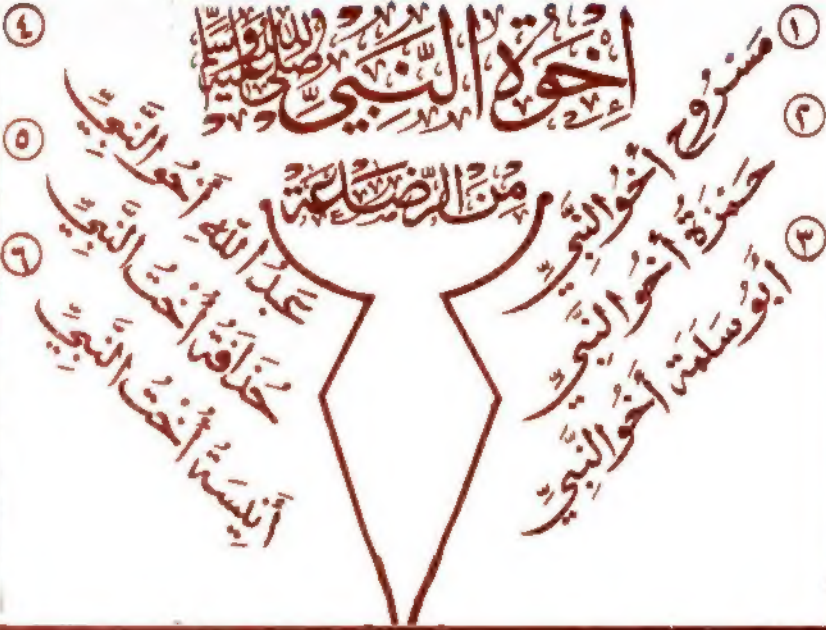 إِخْوَةُ النَّبِيِّ صلى الله عليه وسلم
مِنَ الرَّضَاعَةِ
١ مَسْرُوحٌ أَخُو النَّبِيِّ
٢ حَمْزَةُ أَخُو النَّبِيِّ
٣ أَبُو سَلَمَةَ أَخُو النَّبِيِّ
٤ عَبْدُ اللهِ أَخُو النَّبِيِّ
٥ حُذَافَةُ أُخْتُ النَّبِيِّ
٦ أُنَيْسَةُ أُخْتُ النَّبِيِّ